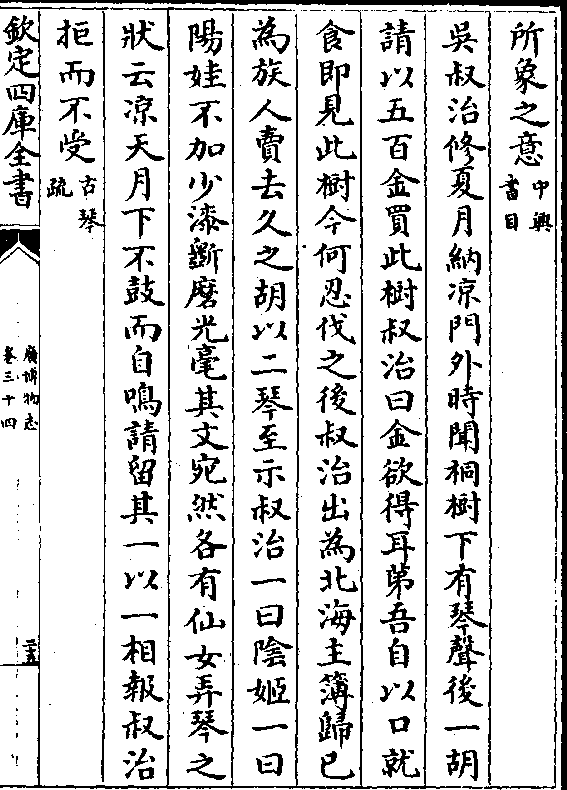 所象之意中興
書目
吳叔治修夏月納凉門外時聞桐樹下有琴聲後一胡
請以五百金買此樹叔治曰金欲得耳第吾自以口就
食即見此樹今何忍伐之後叔治出為北海主簿歸已
為族人賣去久之胡以二琴至示叔治一曰陰姬一曰
陽娃不加少漆斵磨光毫其文宛然各有仙女弄琴之
狀云凉天月下不鼓而自鳴請留其一以一相報叔治
拒而不受古琴
疏
欽定四庫全書
廣博物志
卷三十四
二五